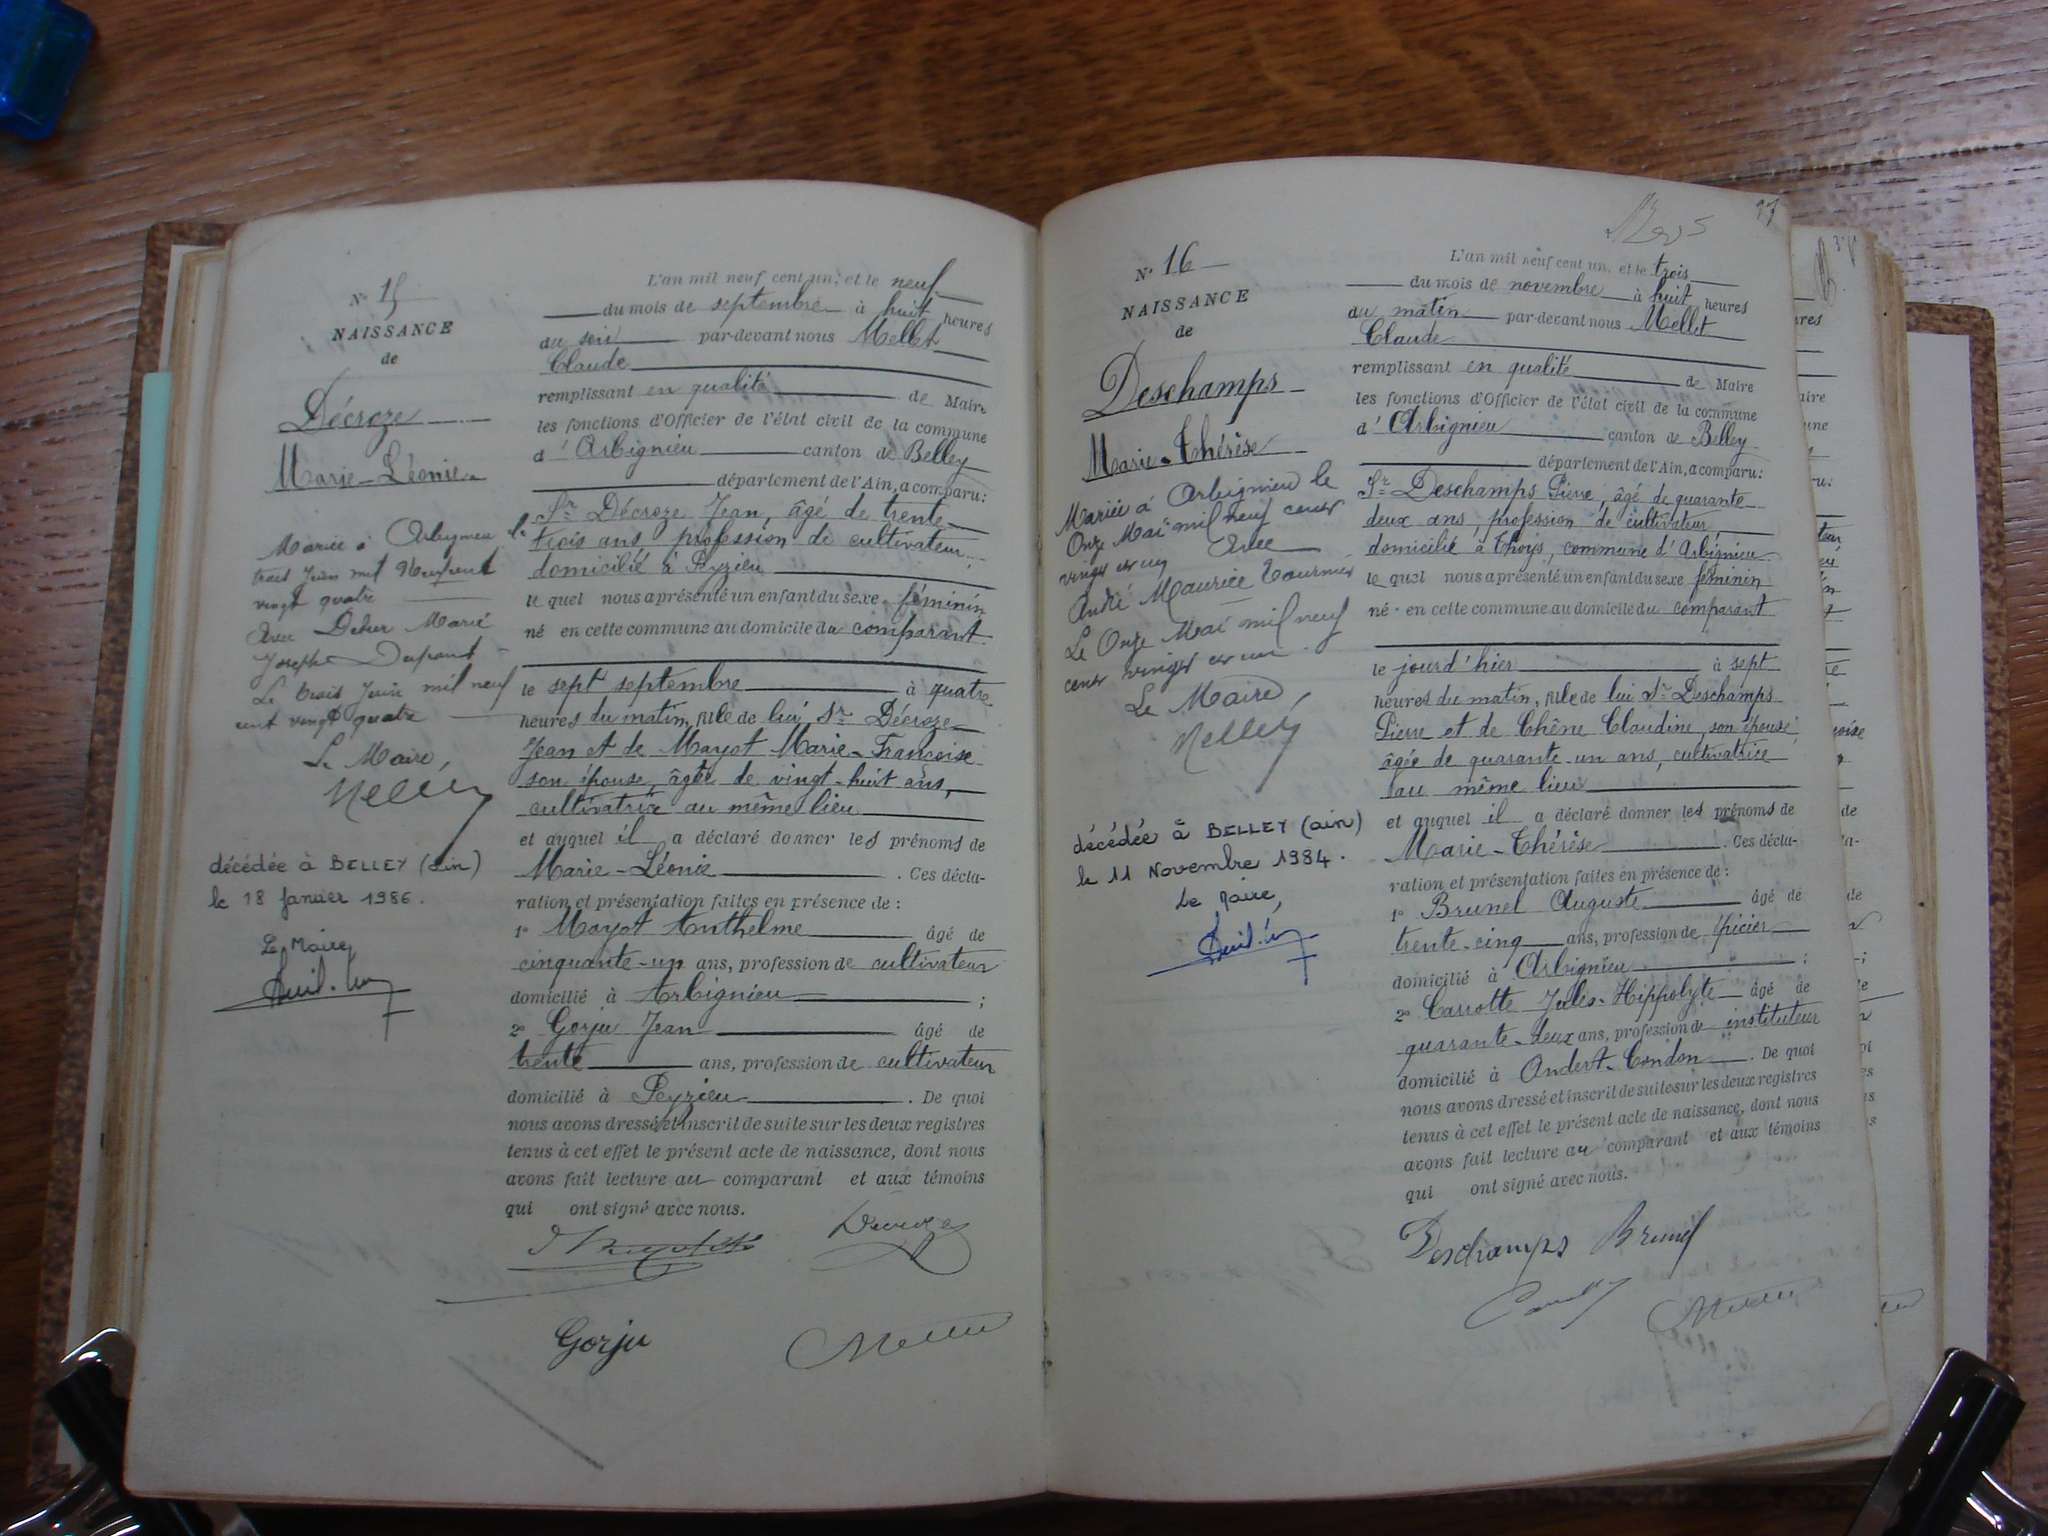 N° 15
NAISSANCE
de
Décroze
Marie-Léonie
Mariée à Arbignieu le
trois Juin mil Neuf cent
vingt quatre
Avec Marié
Joseph Dupont
Le trois Juin mil neuf
cent vingt quatre
Le Maire,
Mellet
décédée à BELLEY (Ain)
le 18 Janvier 1986.
Le Maire,
L'an mil neuf cent un, et le neuf
du mois de septembre à huit heures
du soir par-devant nous Mellet
Claude
remplissant en qualité de Maire
les fonctions d'Officier de l'état civil de la commune
d'Arbignieu canton de Belley
département de l'Ain, a comparu:
Sr Décroze Jean, âgé de trente
trois ans, profession de cultivateur,
domicilié à Peyzieu
le quel nous a présenté un enfant du sexe féminin
né en cette commune au domicile du comparant
le sept septembre à quatre
heures du matin, fille de lui Sr Décroze
Jean et de Mayot Marie-Françoise
son épouse, âgée de vingt-huit ans,
cultivatrice au même lieu
et auquel il a déclaré donner les prénoms de
Marie-Léonie . Ces décla-
ration et présentation faites en présence de :
1° Mayot Anthelme âgé de
cinquante-un ans, profession de cultivateur
domicilié à Arbignieu ;
2° Gorju Jean âgé de
trente ans, profession de cultivateur
domicilié à Peyzieu . De quoi
nous avons dressé et inscrit de suite sur les deux registres
tenus à cet effet le présent acte de naissance, dont nous
avons fait lecture au comparant et aux témoins
qui ont signé avec nous.
Décroze
Gorju
Mellet
97
N° 16
NAISSANCE
de
Deschamps
Marie-Thérèse
Mariée à Arbignieu le
Onze Mai mil neuf cent
vingt et un Avec
André Maurice Tournier
Le Onze Mai mil neuf
cent vingt et un.
Le Maire,
Mellet
décédée à BELLEY (ain)
le 11 Novembre 1984.
Le Maire,
L'an mil neuf cent un, et le trois
du mois de novembre à huit heures
du matin par-devant nous Mellet
Claude
remplissant en qualité de Maire
les fonctions d'Officier de l'état civil de la commune
d'Arbignieu canton de Belley
département de l'Ain, a comparu:
Sr Deschamps Pierre, âgé de quarante
deux ans, profession de cultivateur
domicilié à Thoys, commune d'Arbignieu
le quel nous a présenté un enfant du sexe féminin
né en cette commune au domicile du comparant
le jourd'hier à sept
heures du matin, fille de lui Sr Deschamps
Pierre et de Chêne Claudine, son épouse
âgée de quarante-un ans, cultivatrice
au même lieu
et auquel il a déclaré donner les prénoms de
Marie-Thérèse . Ces décla-
ration et présentation faites en présence de :
1° Brunel Auguste âgé de
trente-cinq ans, profession de épicier
domicilié à Arbignieu ;
2° Carrotte Jules-Hippolyte âgé de
quarante-deux ans, profession de instituteur
domicilié à Andert-Condon . De quoi
nous avons dressé et inscrit de suite sur les deux registres
tenus à cet effet le présent acte de naissance, dont nous
avons fait lecture au comparant et aux témoins
qui ont signé avec nous.
Deschamps Brunel
Mellet